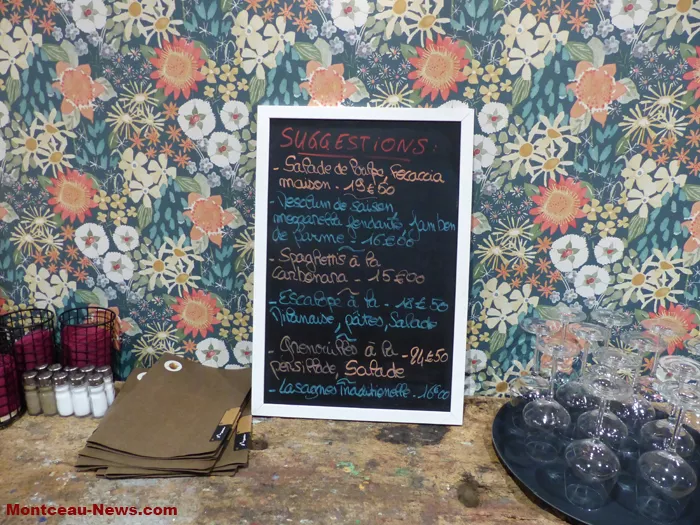 SUGGESTIONS:
- Salade de Poulpe, Foccaccia
maison - 19€50
de saison
fondante, Jambon
de parme - 16€00
- Spaghettis à la
Carbonara - 15€00
- Escalope à la - 18€50
Milanaise, Pâtes, Salade
- Grenouilles à la - 24€50
persillade, Salade
- Lasagnes Traditionnelle - 16€00
Montceau-News.com